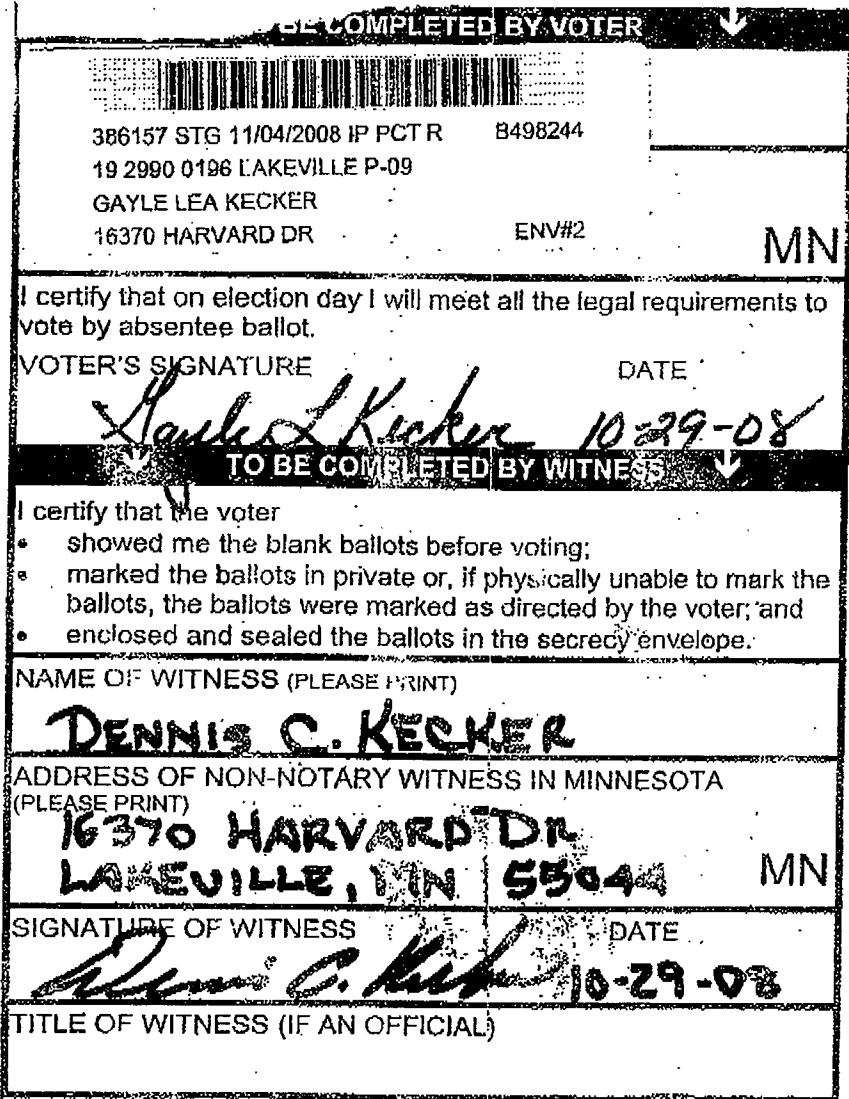 BE COMPLETED BY VOTER
386157 STG 11/04/2008 IP PCT R B498244
19 2990 0196 LAKEVILLE P-09
GAYLE LEA KECKER
16370 HARVARD DR ENV#2
MN
I certify that on election day I will meet all the legal requirements to
vote by absentee ballot.
VOTER'S SIGNATURE DATE
Gayle L Kecker 10-29-08
TO BE COMPLETED BY WITNESS
I certify that the voter
• showed me the blank ballots before voting;
• marked the ballots in private or, if physically unable to mark the
ballots, the ballots were marked as directed by the voter; and
• enclosed and sealed the ballots in the secrecy envelope.
NAME OF WITNESS (PLEASE PRINT)
DENNIS C. KECKER
ADDRESS OF NON-NOTARY WITNESS IN MINNESOTA
(PLEASE PRINT)
16370 HARVARD DR
LAKEVILLE, MN 55044
MN
SIGNATURE OF WITNESS DATE
Dennis C. Kecker 10-29-08
TITLE OF WITNESS (IF AN OFFICIAL)